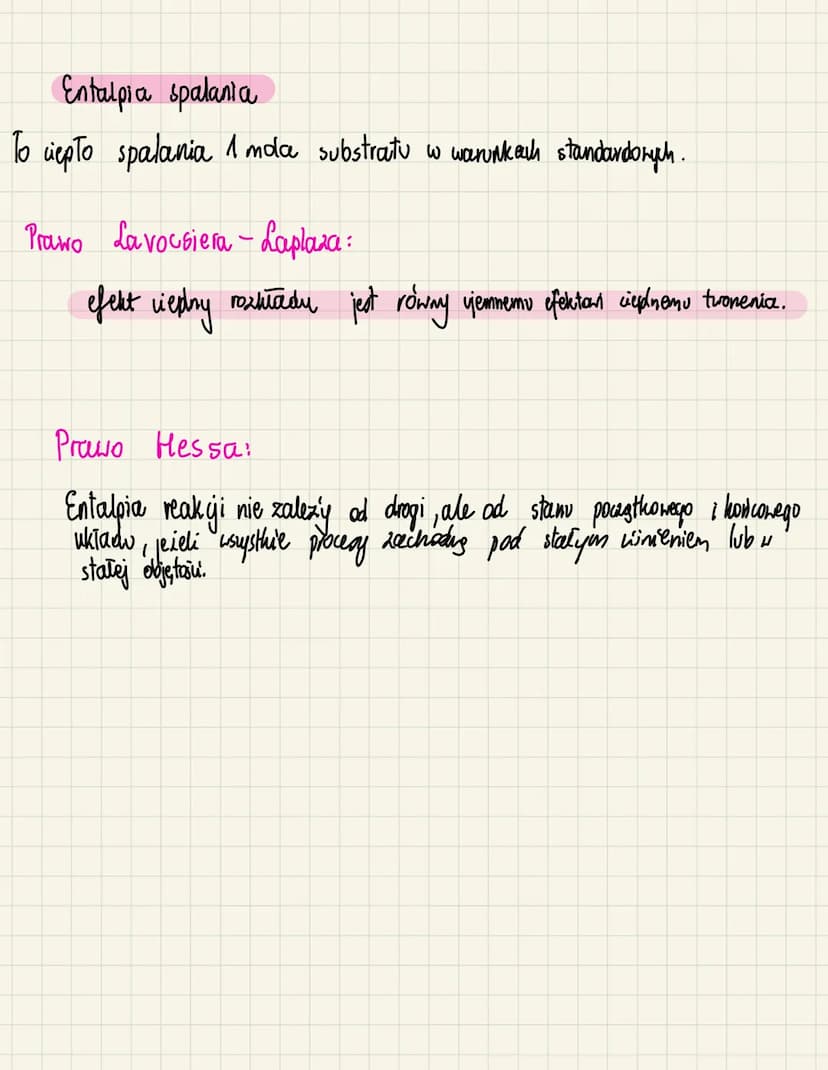 Entalpia spalania
To ciepło spalania 1 mola substratu w warunkach standardowych.
Prawo Lavoisiera - Laplaza:
efekt cieplny rozkładu jest równy ujemnemu efektowi cieplnemu tworzenia.
Prawo Hessa:
Entalpia reakcji nie zależy od drogi, ale od stanu początkowego i końcowego
układu, jeżeli wszystkie procesy zachodzą pod stałym ciśnieniem lub w
stałej objętości.